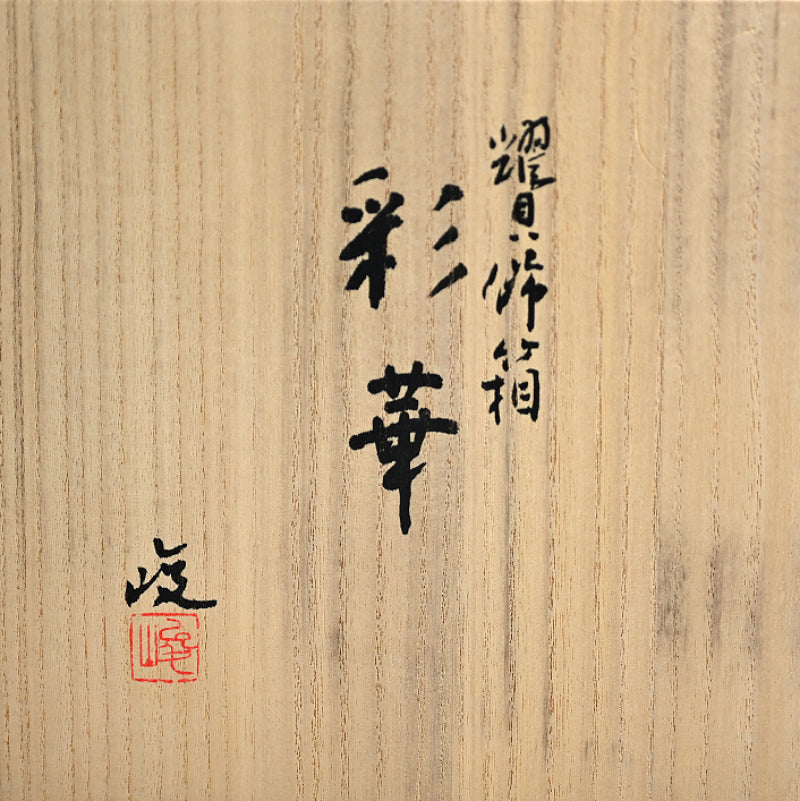 耀貝飾箱
彩華
峻
峻